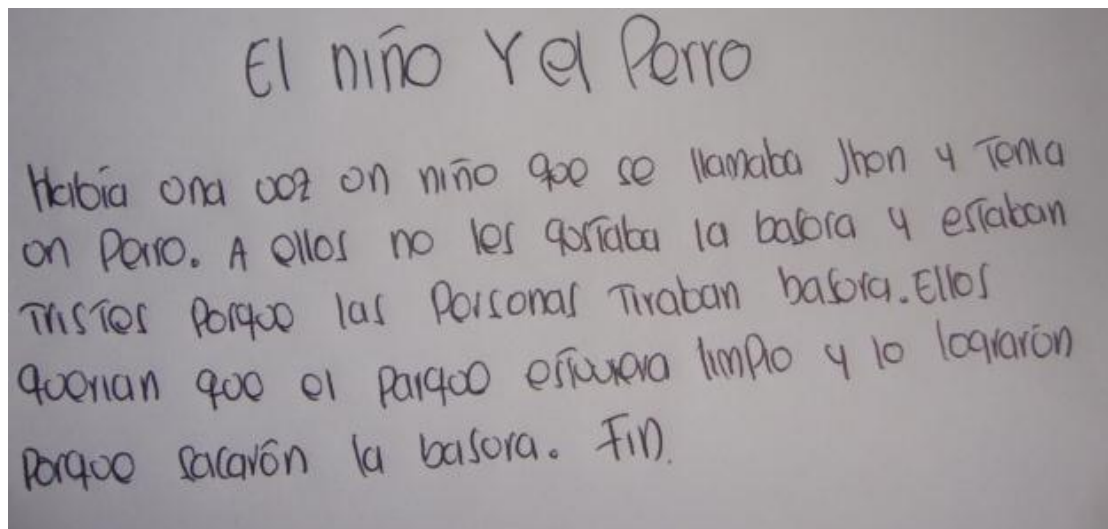 El niño Y el Perro
Había una vez un niño que se llamaba Jhon y Tenia
un Perro. A ellos no les gustaba la basura y estaban
Tristes Porque las Personas Tiraban basura. Ellos
querian que el Parque estuviera limpio y lo lograrón
Porque sacarón la basura. Fin.